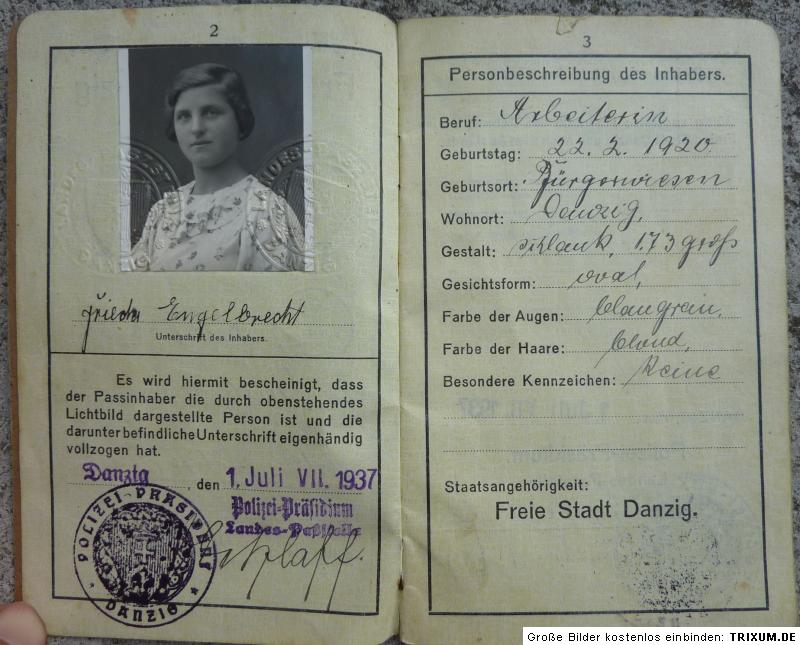 2
Frieda Engelbrecht
Unterschrift des Inhabers.
Es wird hiermit bescheinigt, dass
der Passinhaber die durch obenstehendes
Lichtbild dargestellte Person ist und die
darunter befindliche Unterschrift eigenhändig
vollzogen hat.
Danzig, den 1. Juli VII. 1937
Polizei-Präsidium
Landes-Paßstelle
POLIZEI-PRÄSIDENT
DANZIG
3
Personbeschreibung des Inhabers.
Beruf: Arbeiterin
Geburtstag: 22. 2. 1920
Geburtsort: Bürgerwiesen
Wohnort: Danzig,
Gestalt: schlank, 1.73 groß
Gesichtsform: oval,
Farbe der Augen: blaugrau,
Farbe der Haare: blond,
Besondere Kennzeichen: Keine
Staatsangehörigkeit:
Freie Stadt Danzig.
Große Bilder kostenlos einbinden: TRIXUM.DE